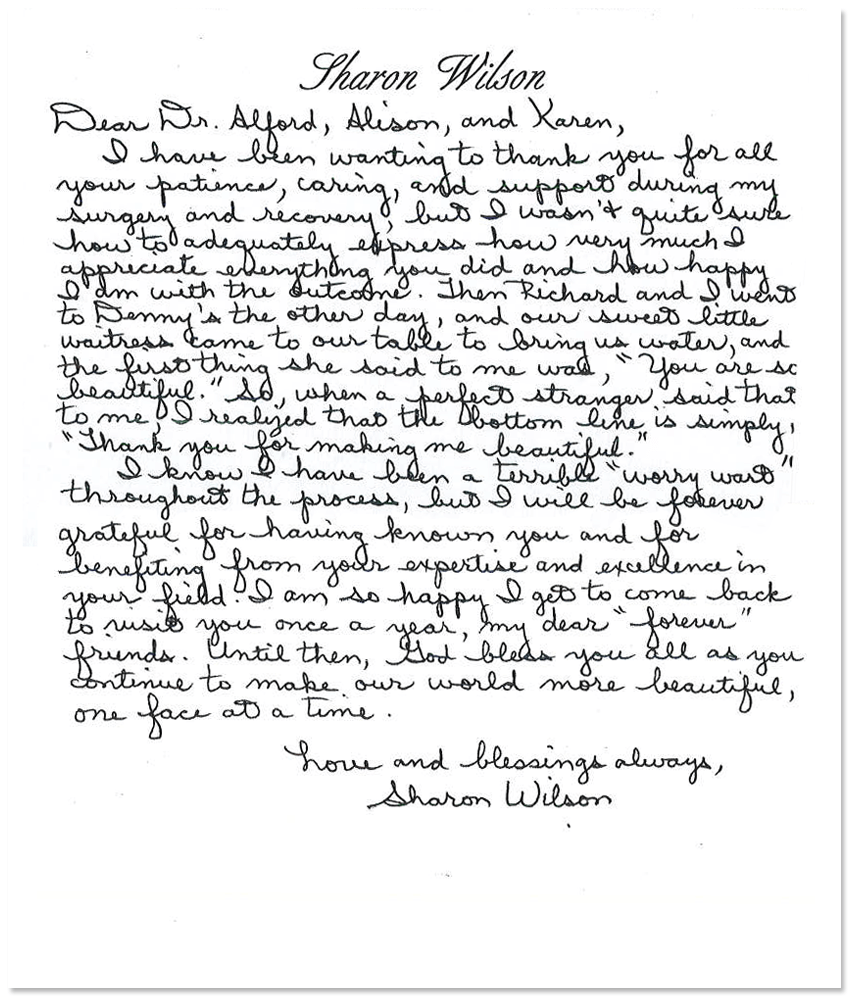 Sharon Wilson
Dear Dr. Alford, Alison, and Karen,
I have been wanting to thank you for all
your patience, caring, and support during my
surgery and recovery, but I wasn't quite sure
how to adequately express how very much I
appreciate everything you did and how happy
I am with the outcome. Then Richard and I went
to Denny's the other day, and our sweet little
waitress came to our table to bring us water, and
the first thing she said to me was, "You are so
beautiful." So, when a perfect stranger said that
to me, I realized that the bottom line is simply,
"Thank you for making me beautiful."
I know I have been a terrible "worry wart"
throughout the process, but I will be forever
grateful for having known you and for
benefiting from your expertise and excellence in
your field. I am so happy I get to come back
to visit you once a year, my dear "forever"
friends. Until then, God bless you all as you
continue to make our world more beautiful,
one face at a time.
Love and blessings always,
Sharon Wilson